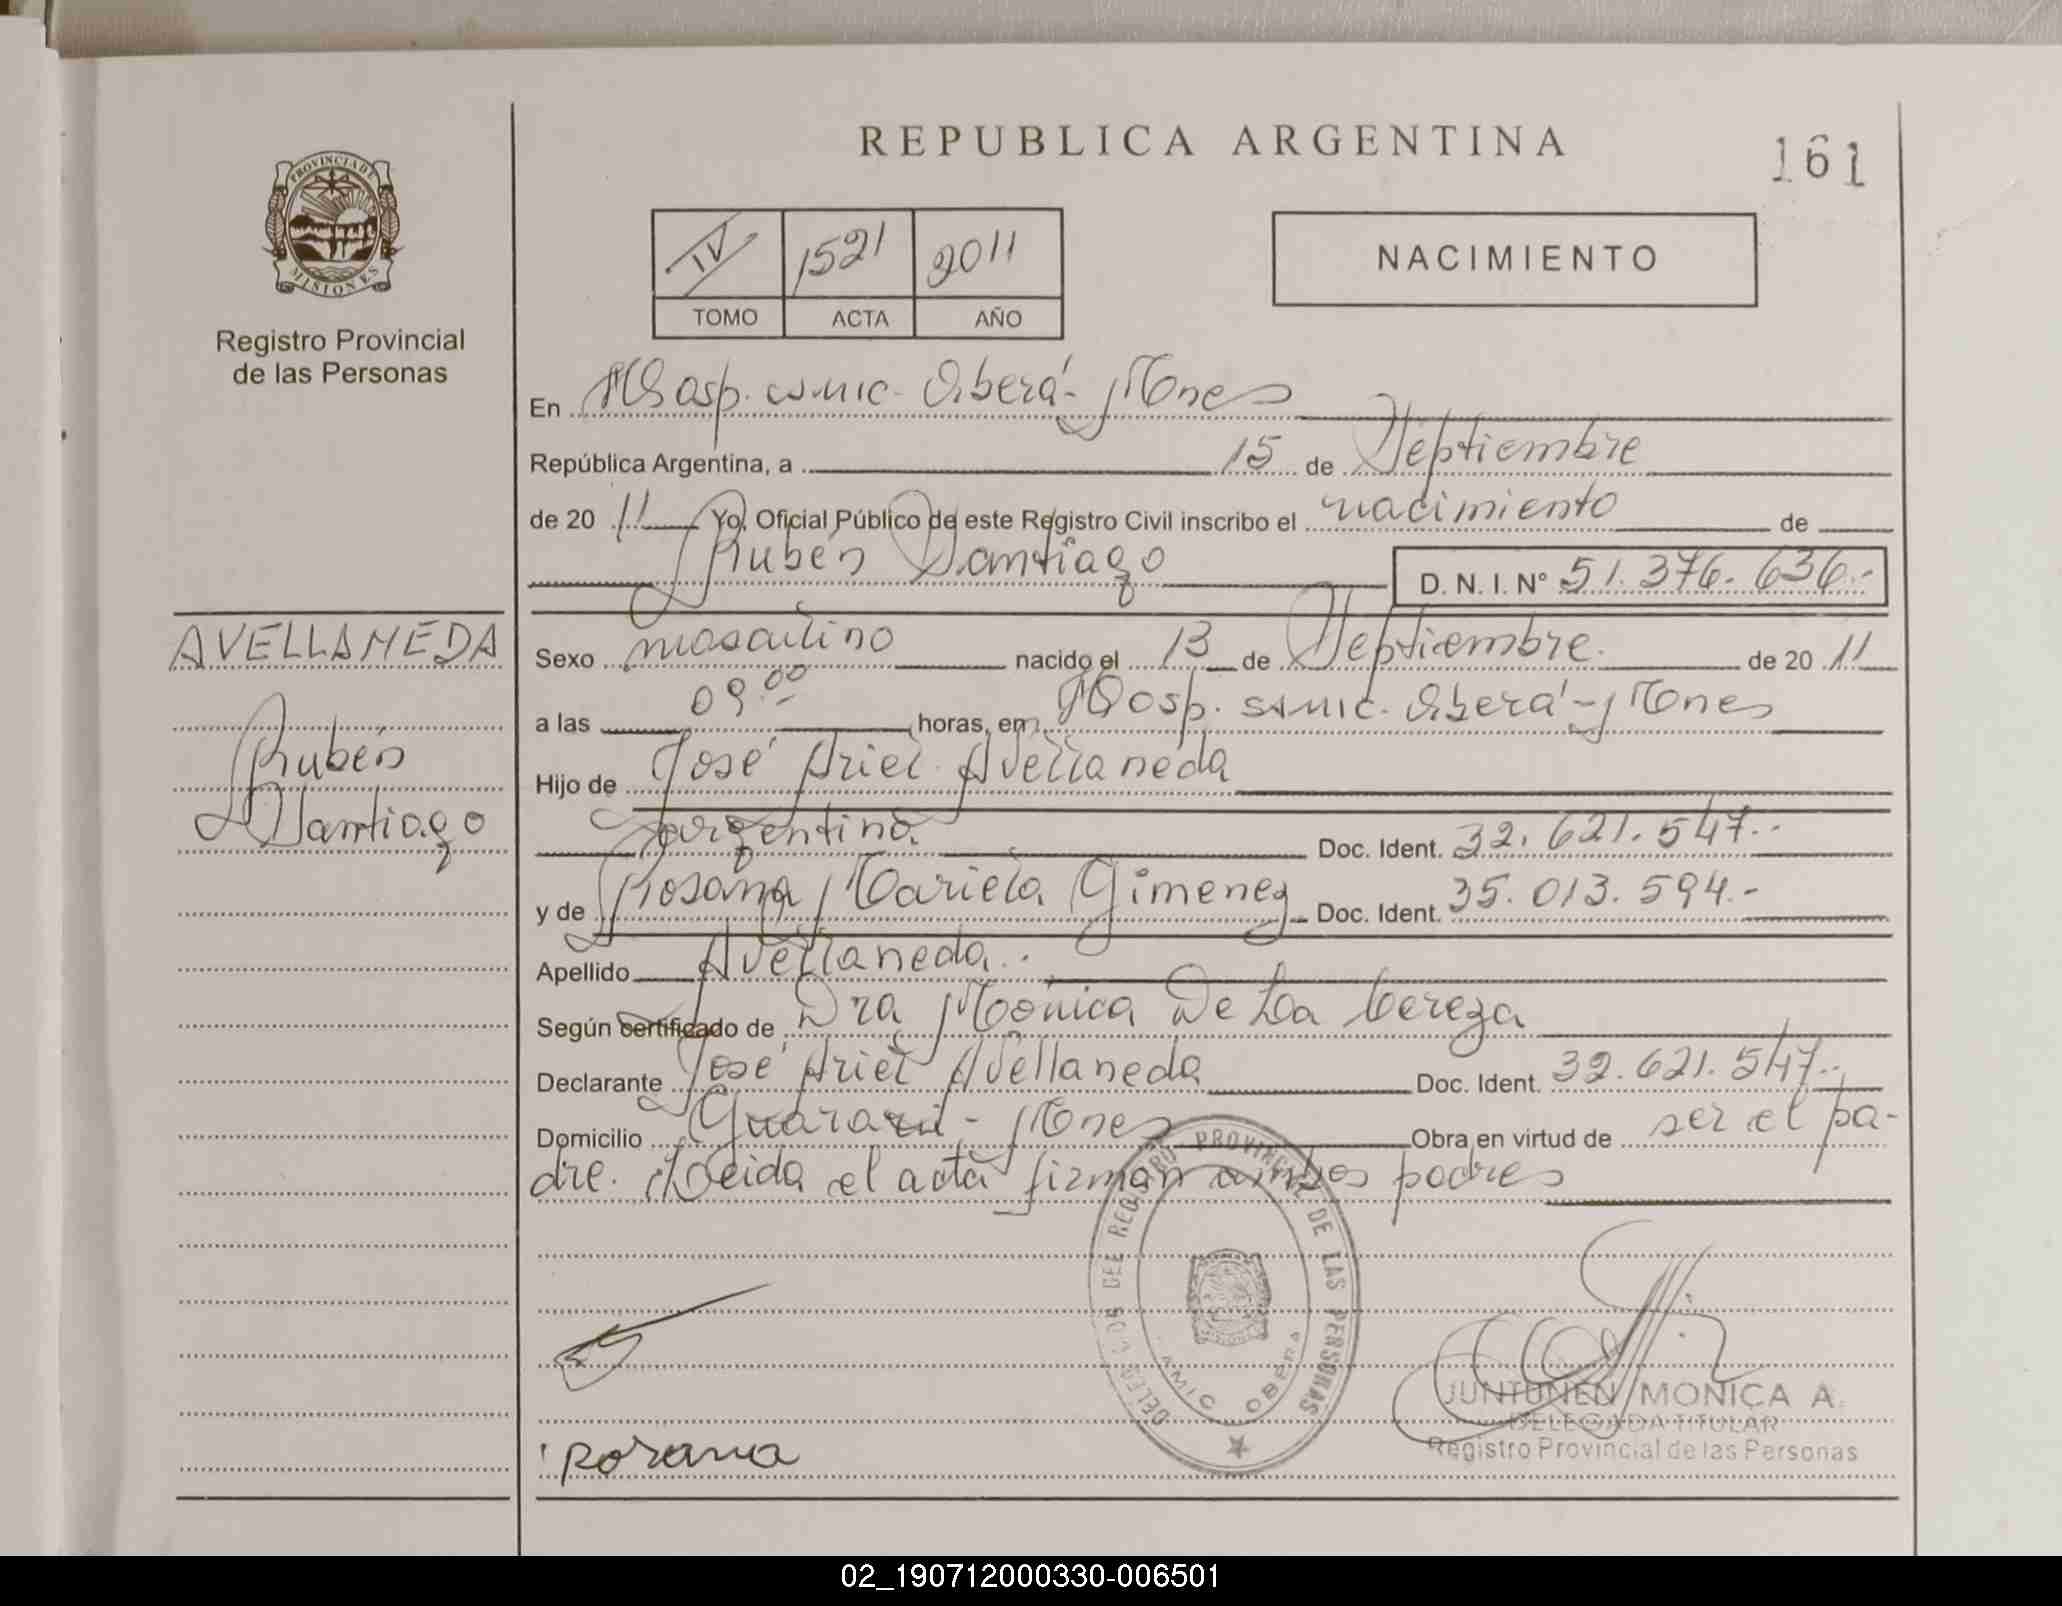 REPUBLICA ARGENTINA
161
PROVINCIA DE
MISIONES
Registro Provincial
de las Personas
IV 1521 2011
TOMO ACTA AÑO
NACIMIENTO
En Hosp. Samic. Oberá - Mnes
República Argentina, a 15 de Septiembre
de 20 11 Yo, Oficial Público de este Registro Civil inscribo el nacimiento de
Rubén Santiago D. N. I. N° 51.376.636.-
AVELLANEDA
Rubén
Santiago
Sexo masculino nacido el 13 de Septiembre. de 20 11
a las 09.00 horas, en Hosp. Samic. Oberá - Mnes
Hijo de José Ariel Avellaneda
argentino. Doc. Ident. 32.621.547.-
y de Rosana Mariela Gimenez Doc. Ident. 35.013.594.-
Apellido Avellaneda.-
Según certificado de Dra Mónica De La
Declarante José Ariel Avellaneda Doc. Ident. 32.621.547.-
Domicilio Guaraní - Mnes Obra en virtud de ser el pa-
dre. Leida el acta firman ambos padres
DEL REGISTRO PROVINCIAL DE LAS PERSONAS
SAMIC OBERA
JUNTUNEN MONICA A.
DELEGADA TITULAR
Registro Provincial de las Personas
rosana
02_190712000330-006501